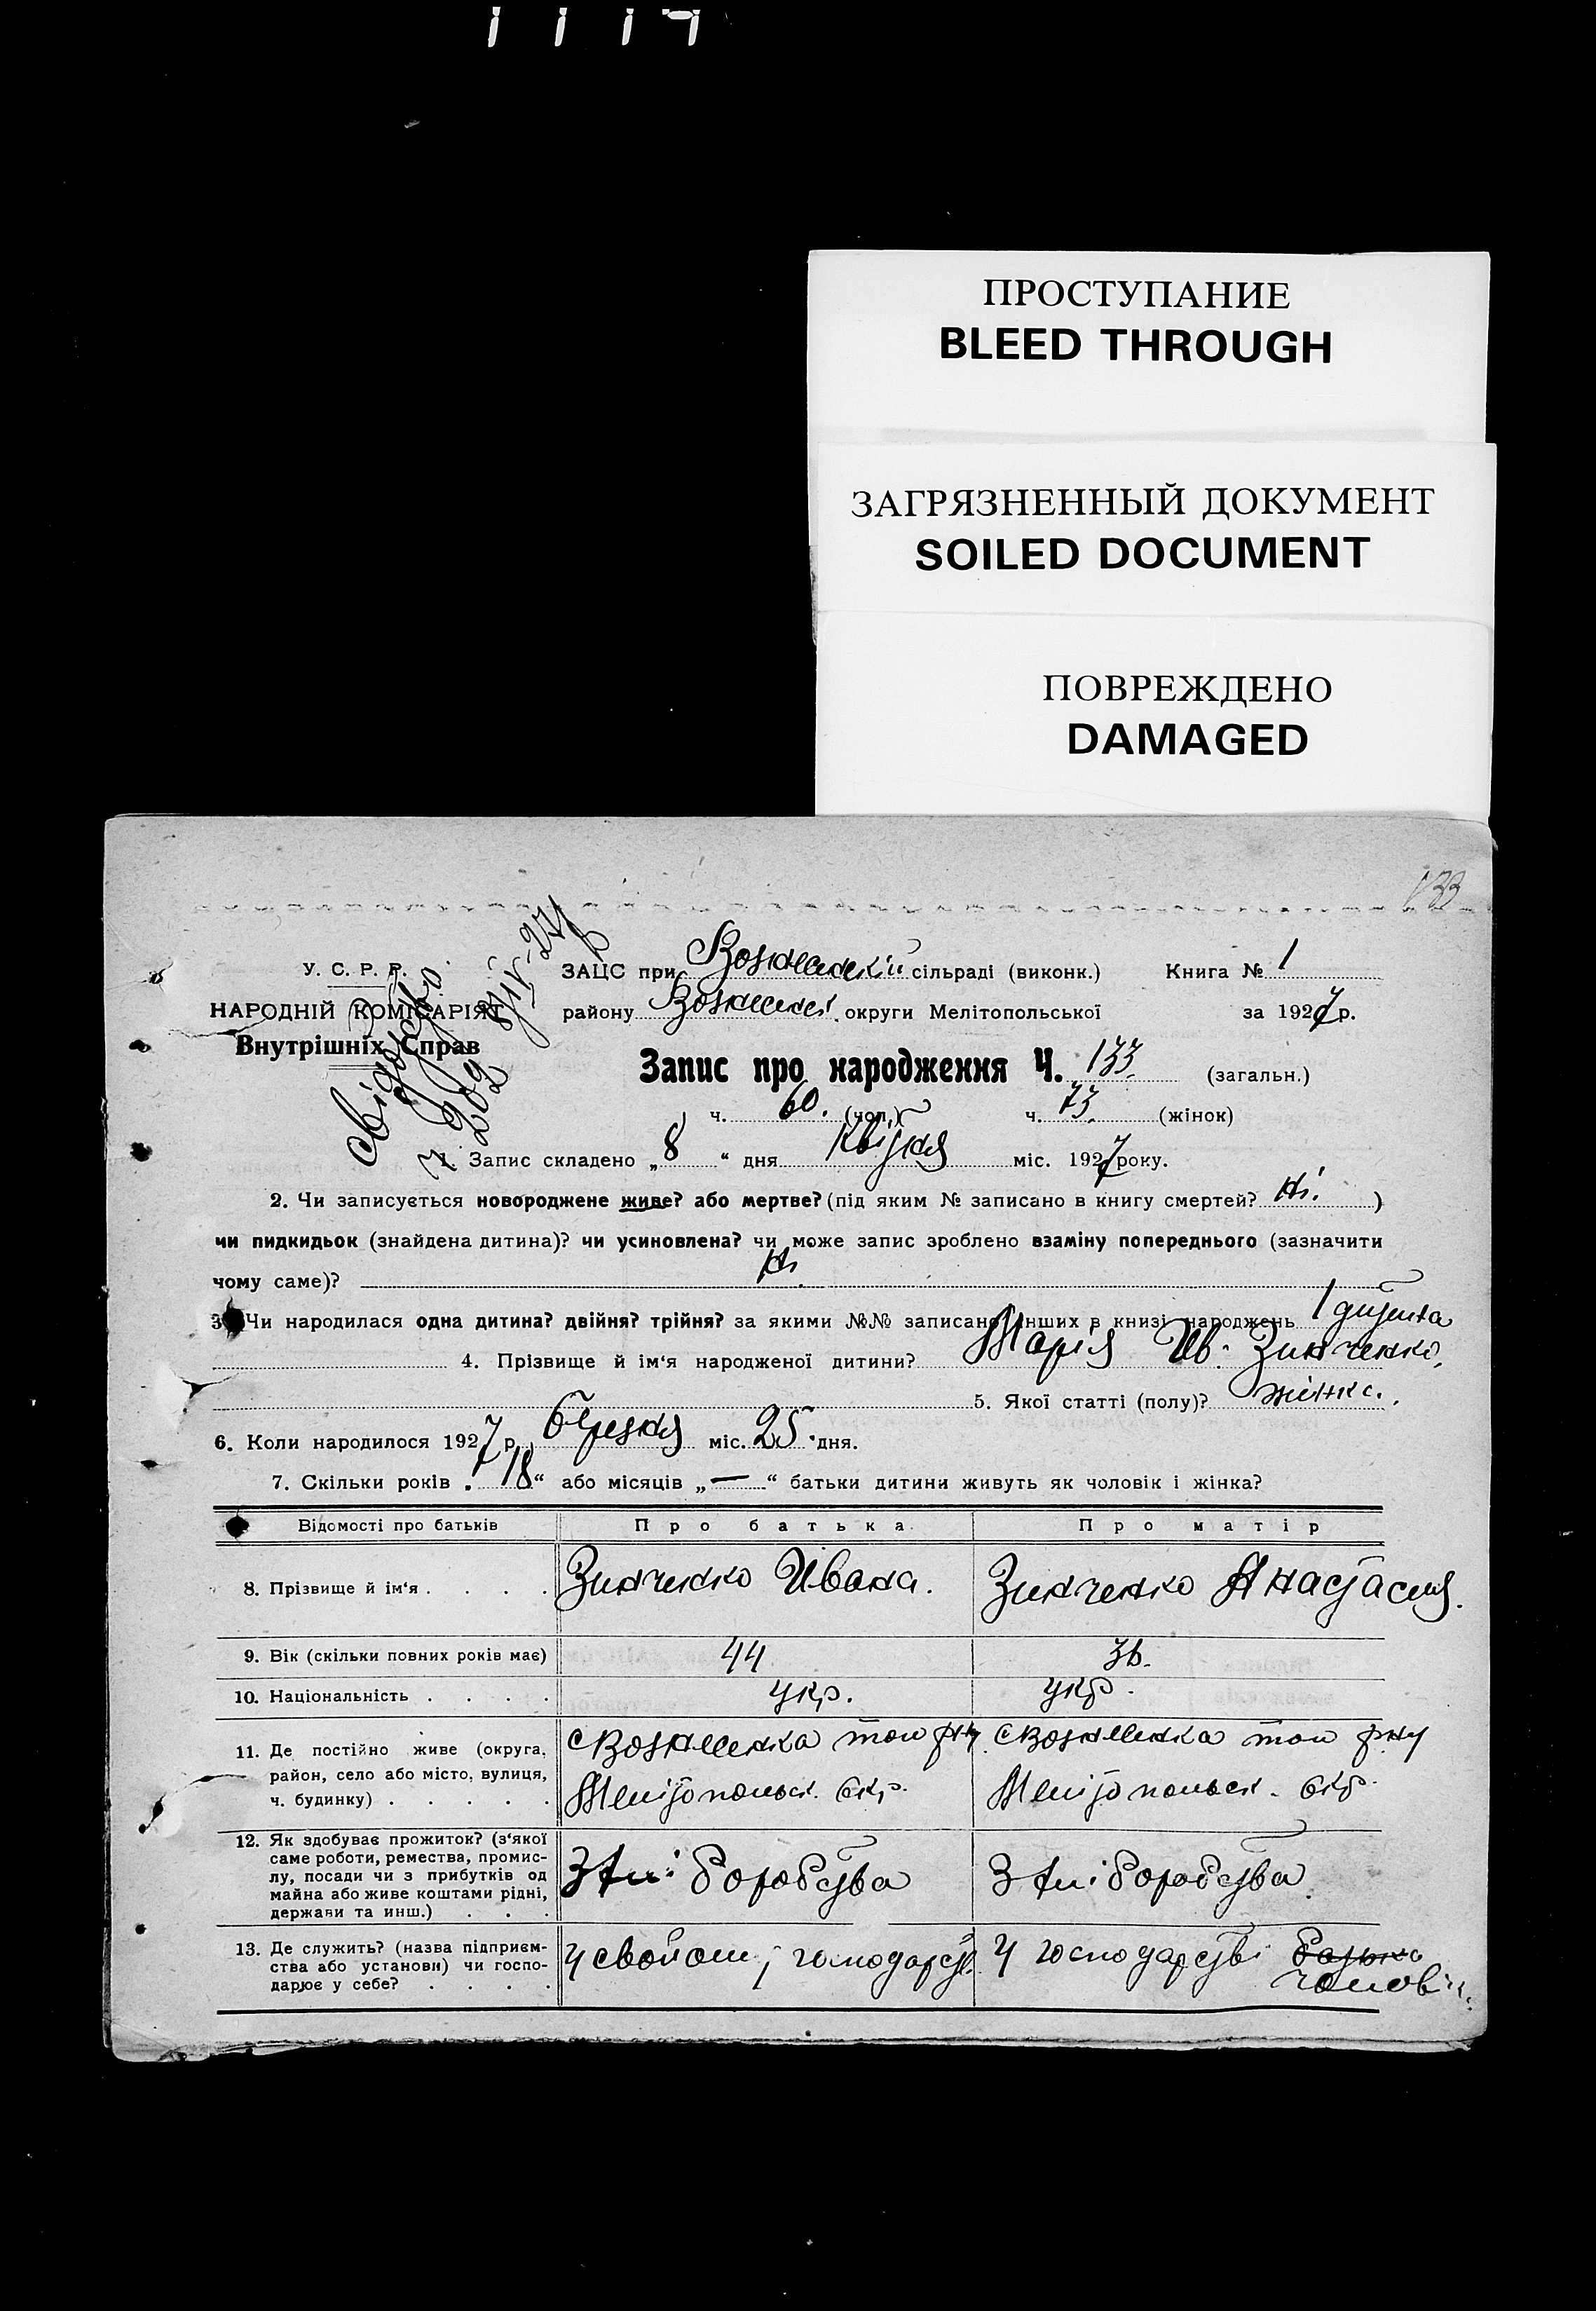 ПРОСТУПАНИЕ
BLEED THROUGH
ЗАГРЯЗНЕННЫЙ ДОКУМЕНТ
SOILED DOCUMENT
ПОВРЕЖДЕНО
DAMAGED
133
У. С. Р. Р.
НАРОДНІЙ КОМІСАРІЯТ
Внутрішніх Справ
ЗАЦС при Вознесенській сільраді (виконк.) Книга № 1
району Вознесенськ. округи Мелітопольської за 1927 р.
Запис про народження Ч. 133. (загальн.)
ч. 60. (чол.) ч. 73. (жінок)
1. Запис складено „8“ дня Квітня міс. 1927 року.
2. Чи записується новороджене живе? або мертве? (під яким № записано в книгу смертей? Ні. )
чи пидкидьок (знайдена дитина)? чи усиновлена? чи може запис зроблено взаміну попереднього (зазначити
чому саме)? Ні.
3. Чи народилася одна дитина? двійня? трійня? за якими №№ записано інших в книзі народжень 1 дитина
4. Прізвище й ім'я народженої дитини? Марія Ив. Зинченко.
5. Якої статті (полу)? жінка.
6. Коли народилося 1927 р. березня міс. 25 дня.
7. Скільки років „18“ або місяців „—“ батьки дитини живуть як чоловік і жінка?
Відомості про батьків Про батька Про матір
8. Прізвище й ім'я . . . . Зинченко Ивана. Зинченко Анастасия.
9. Вік (скільки повних років має) 44 36.
10. Національність . . . . укр. укр.
11. Де постійно живе (округа,
район, село або місто, вулиця,
ч. будинку) . . . . .
с Вознесенка того р-ну
Мелітопольск. окр.
с Вознесенка того р-ну
Мелітопольск. окр.
12. Як здобуває прожиток? (з'якої
саме роботи, ремества, промис-
лу, посади чи з прибутків од
майна або живе коштами рідні,
держави та инш.) . . .
З хліборобства
З хліборобства
13. Де служить? (назва підприєм-
ства або установи) чи госпо-
дарює у себе? . . . .
У свойом господарств.
У господарстві батька
чоловік.